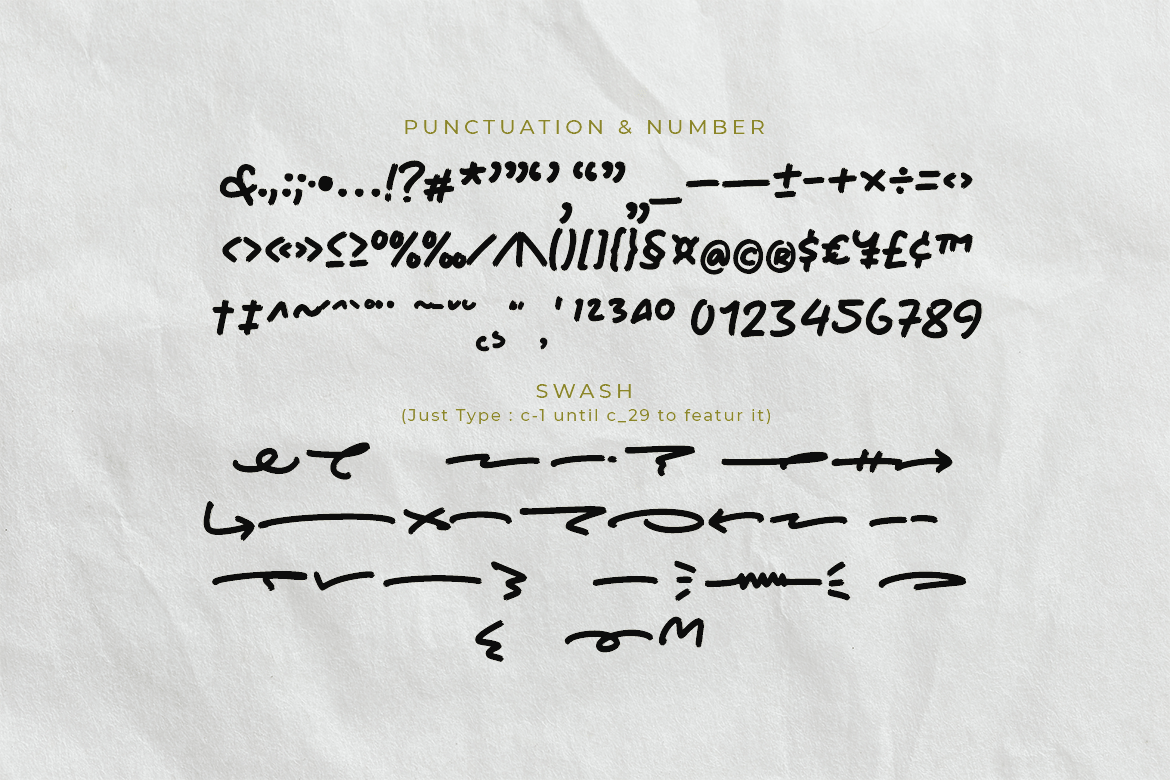 PUNCTUATION & NUMBER
&.,:;·•...!?#*’”“‘’,“”„_—―±−+×÷=‹›
<>«»≤≥°%‰/⁄|\()[]{}§¤@©®$€¥£¢™
†‡^~ˆˇ˚¨˜¯˘¸,'123400123456789
SWASH
(Just Type : c-1 until c_29 to featur it)